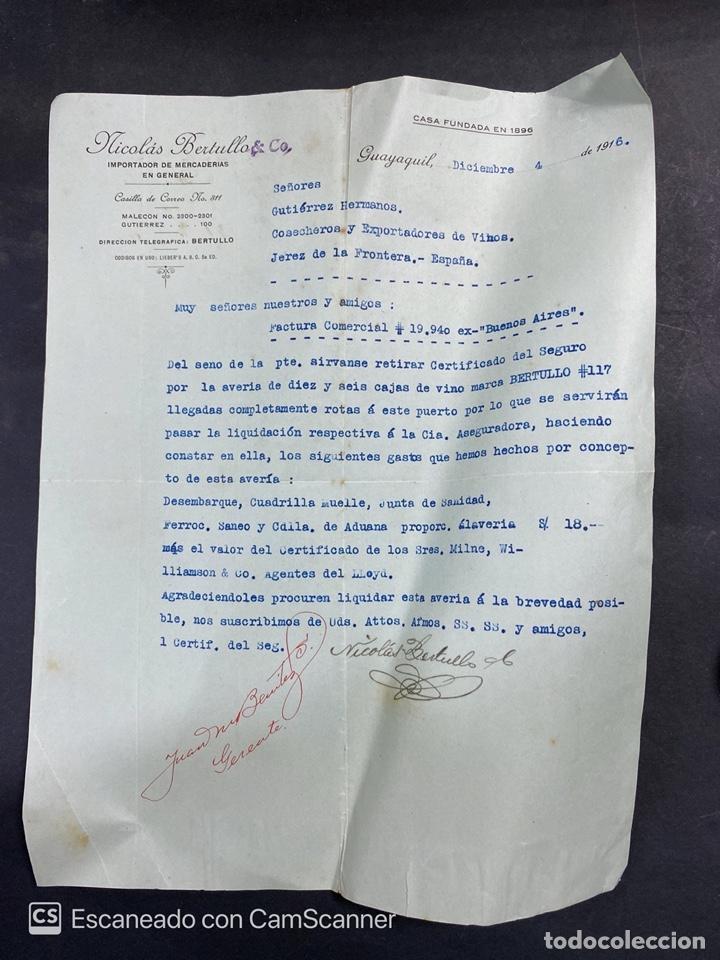 CASA FUNDADA EN 1896
Nicolás Bertullo & Co,
IMPORTADOR DE MERCADERIAS
EN GENERAL
Casilla de Correo No. 311
MALECON No. 2300-2301
GUTIERREZ . . . . 100
DIRECCION TELEGRAFICA: BERTULLO
CODIGOS EN USO: LIEBER'S A. B. C. 5a ED.
Guayaquil, Diciembre 4 de 1916.
Señores
Gutiérrez Hermanos.
Cosecheros y Exportadores de Vinos.
Jerez de la Frontera.- España.
Muy señores nuestros y amigos :
Factura Comercial # 19.940 ex-"Buenos Aires".
Del seno de la pte. sirvanse retirar Certificado del Seguro
por la averia de diez y seis cajas de vino marca BERTULLO #117
llegadas completamente rotas á este puerto por lo que se servirán
pasar la liquidación respectiva á la Cia. Aseguradora, haciendo
constar en ella, los siguientes gastos que hemos hechos por concep-
to de esta avería :
Desembarque, Cuadrilla Muelle, Junta de Sanidad,
Ferroc. Saneo y Cdlla. de Aduana proporc. álaveria S/ 18.--
más el valor del Certificado de los Sres. Milne, Wi-
lliamson & Co. Agentes del LLoyd.
Agradeciendoles procuren liquidar esta averia á la brevedad posi-
ble, nos suscribimos de Uds. Attos. Afmos. SS. SS. y amigos,
1 Certif. del Seg.
Nicolás Bertullo & C
Juan M Benitez S.
Gerente.
CS Escaneado con CamScanner
todocoleccion